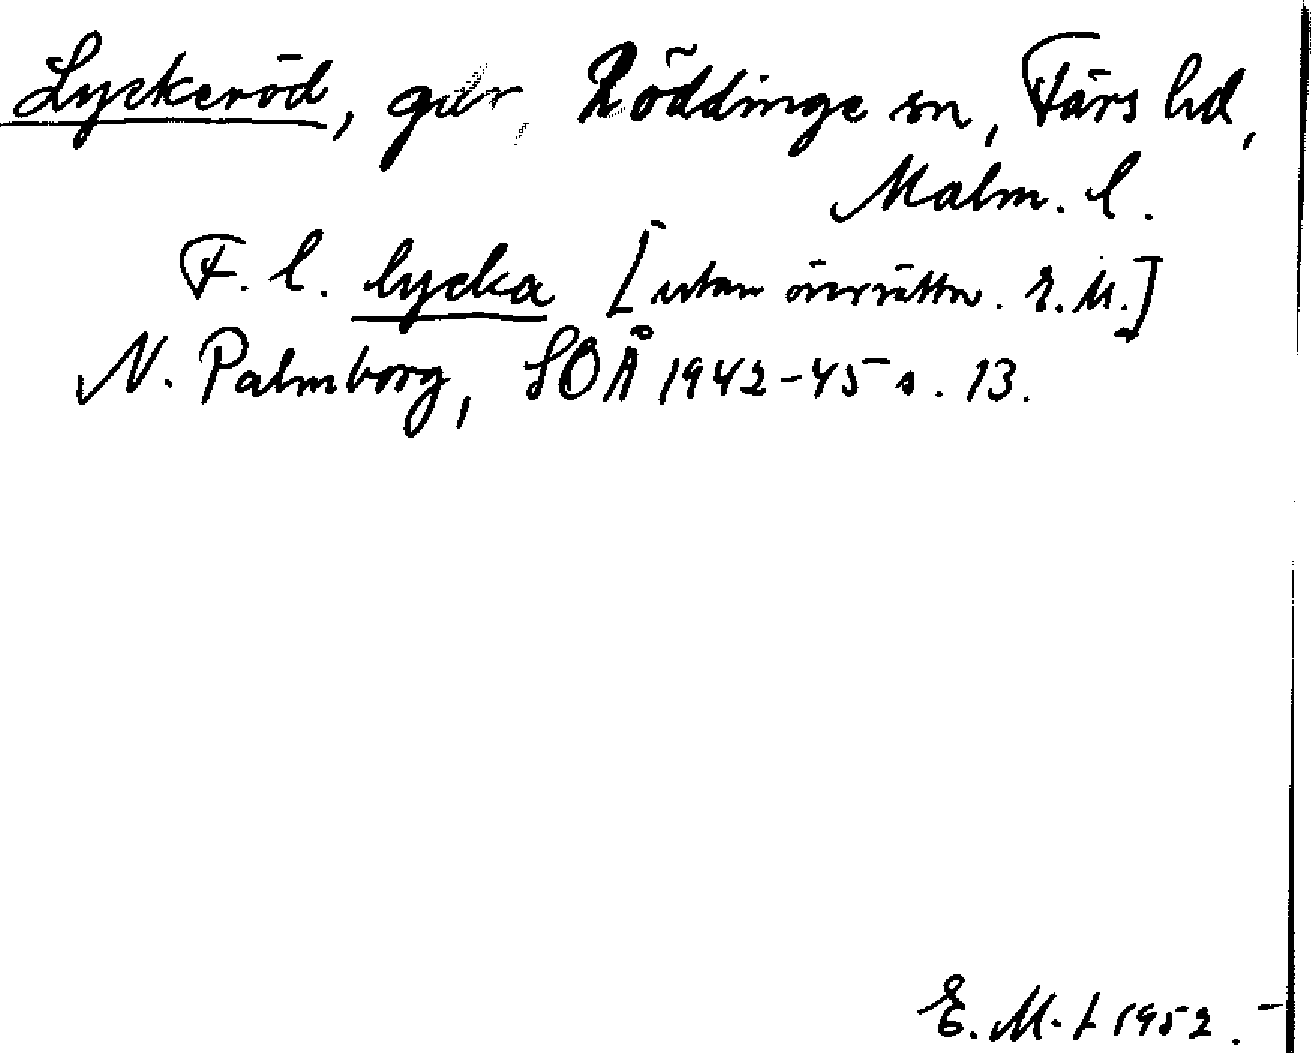 Lyckeröd, gdr, Röddinge sn, Färs hd,
Malm. l.
F. l. lycka [utan översättn. E. M.]
N. Palmborg, SOÅ 1942-45 s. 13.
E. M. 1952.